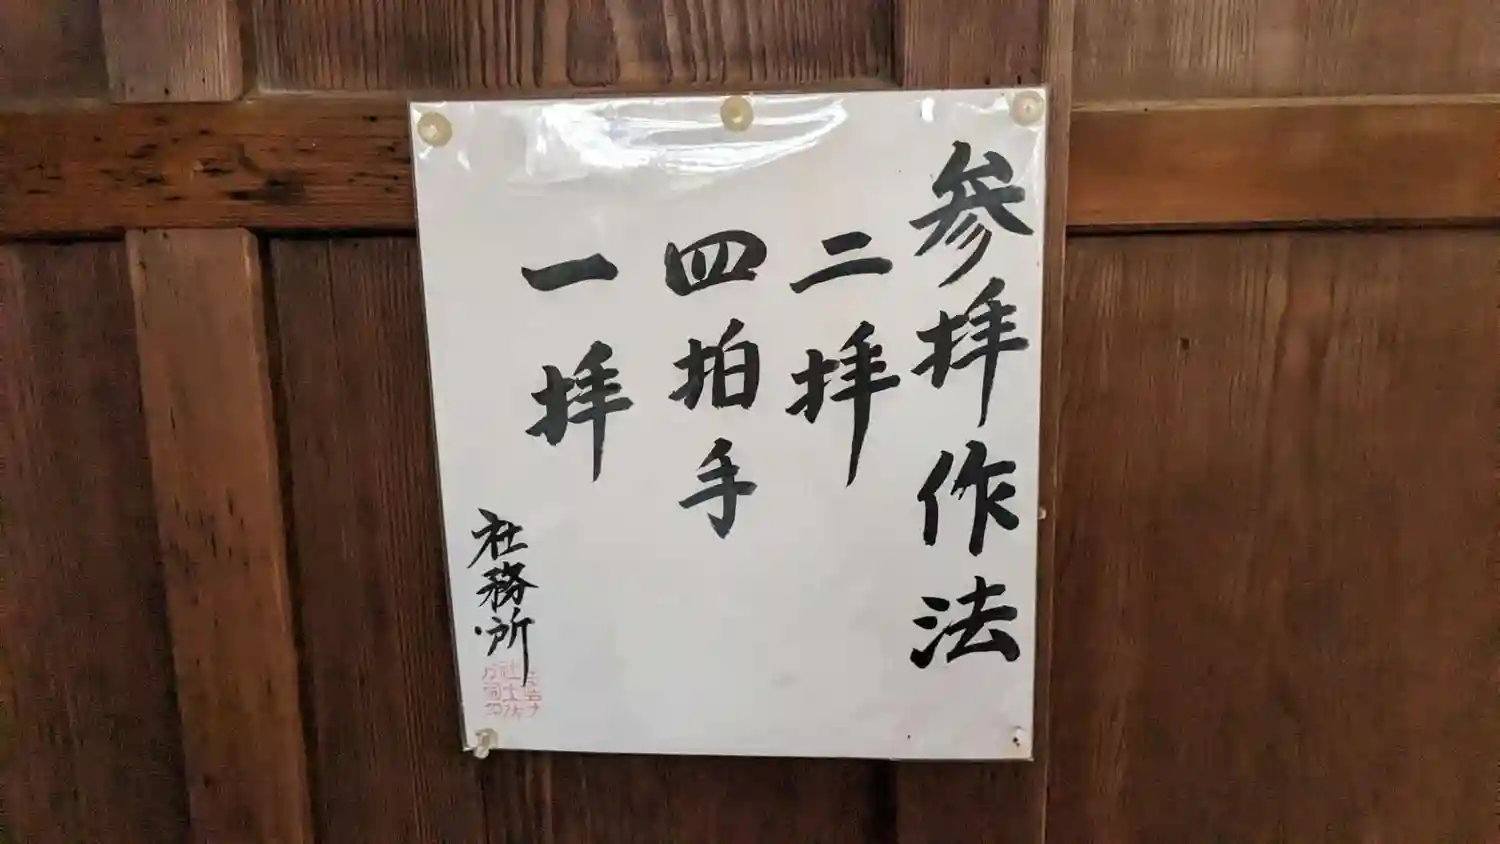 参拝作法
二拝
四拍手
一拝
社務所